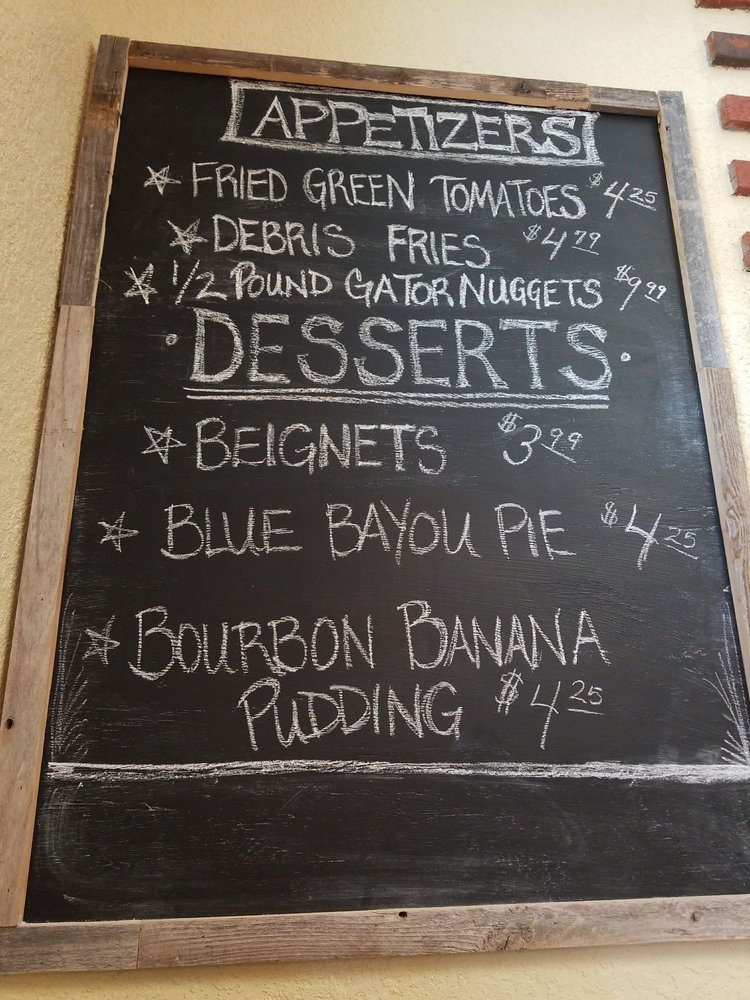 APPETIZERS
☆ FRIED GREEN TOMATOES $4.25
☆ DEBRIS FRIES $4.79
☆ 1/2 POUND GATOR NUGGETS $9.99
· DESSERTS ·
☆ BEIGNETS $3.99
☆ BLUE BAYOU PIE $4.25
☆ BOURBON BANANA
PUDDING $4.25